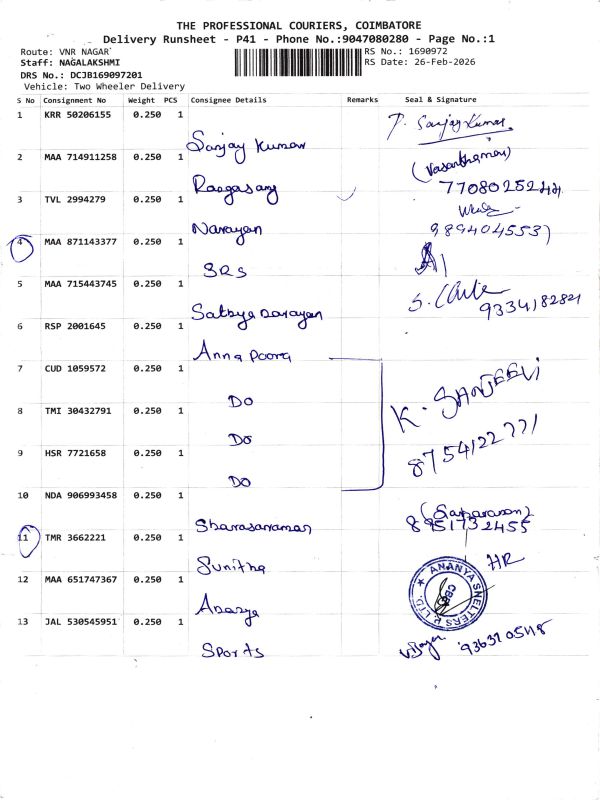 THE PROFESSIONAL COURIERS, COIMBATORE
Delivery Runsheet - P41 - Phone No.:9047080280 - Page No.:1
Route: VNR NAGAR
RS No.: 1690972
Staff: NAGALAKSHMI
RS Date: 26-Feb-2026
DRS No.: DCJB169097201
Vehicle: Two Wheeler Delivery
S No Consignment No Weight PCS Consignee Details Remarks Seal & Signature
1 KRR 50206155 0.250 1 Sanjay Kumar P. Sanjay Kumar
2 MAA 714911258 0.250 1 Raagasary (Vasanthamani)
3 TVL 2994279 0.250 1 Narayan
4 MAA 871143377 0.250 1 SRS
5 MAA 715443745 0.250 1 Sathya Narayan 9334182821
6 RSP 2001645 0.250 1 Anna Poora
7 CUD 1059572 0.250 1 DO
8 TMI 30432791 0.250 1 DO K. SANJEEVI
9 HSR 7721658 0.250 1 DO 8754122771
10 NDA 906993458 0.250 1 8951732455
11 TMR 3662221 0.250 1 Sunitha HR
12 MAA 651747367 0.250 1 ANANYA SHELTERS P. LTD. CBE
13 JAL 530545951 0.250 1 Sports Vijaya